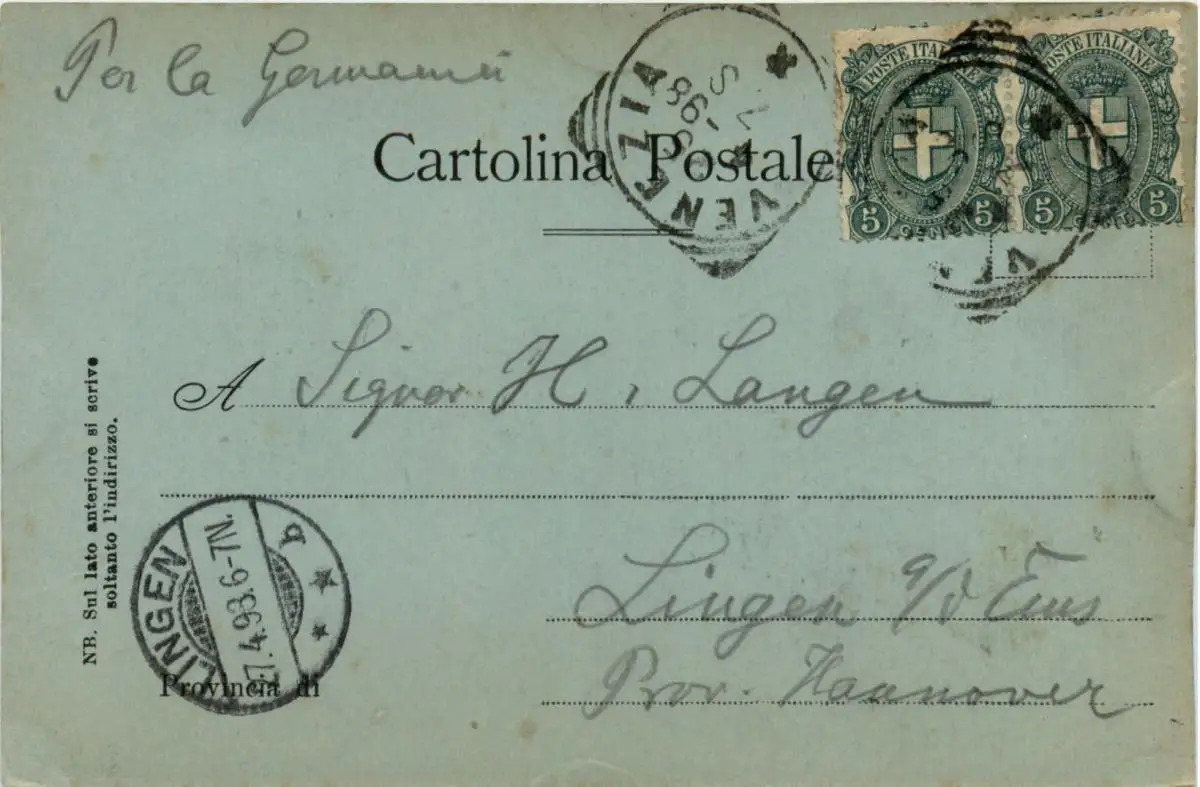 Per la Germania
Cartolina Postale
VENEZIA
98
POSTE ITALIANE
5 5
POSTE ITALIANE
5 5
A Signor H. Langen
NB. Sul lato anteriore si scrive
soltanto l'indirizzo.
LINGEN
27.4.98.6-7N.
b
Lingen a/d Ems
Provincia di
Prov. Hannover